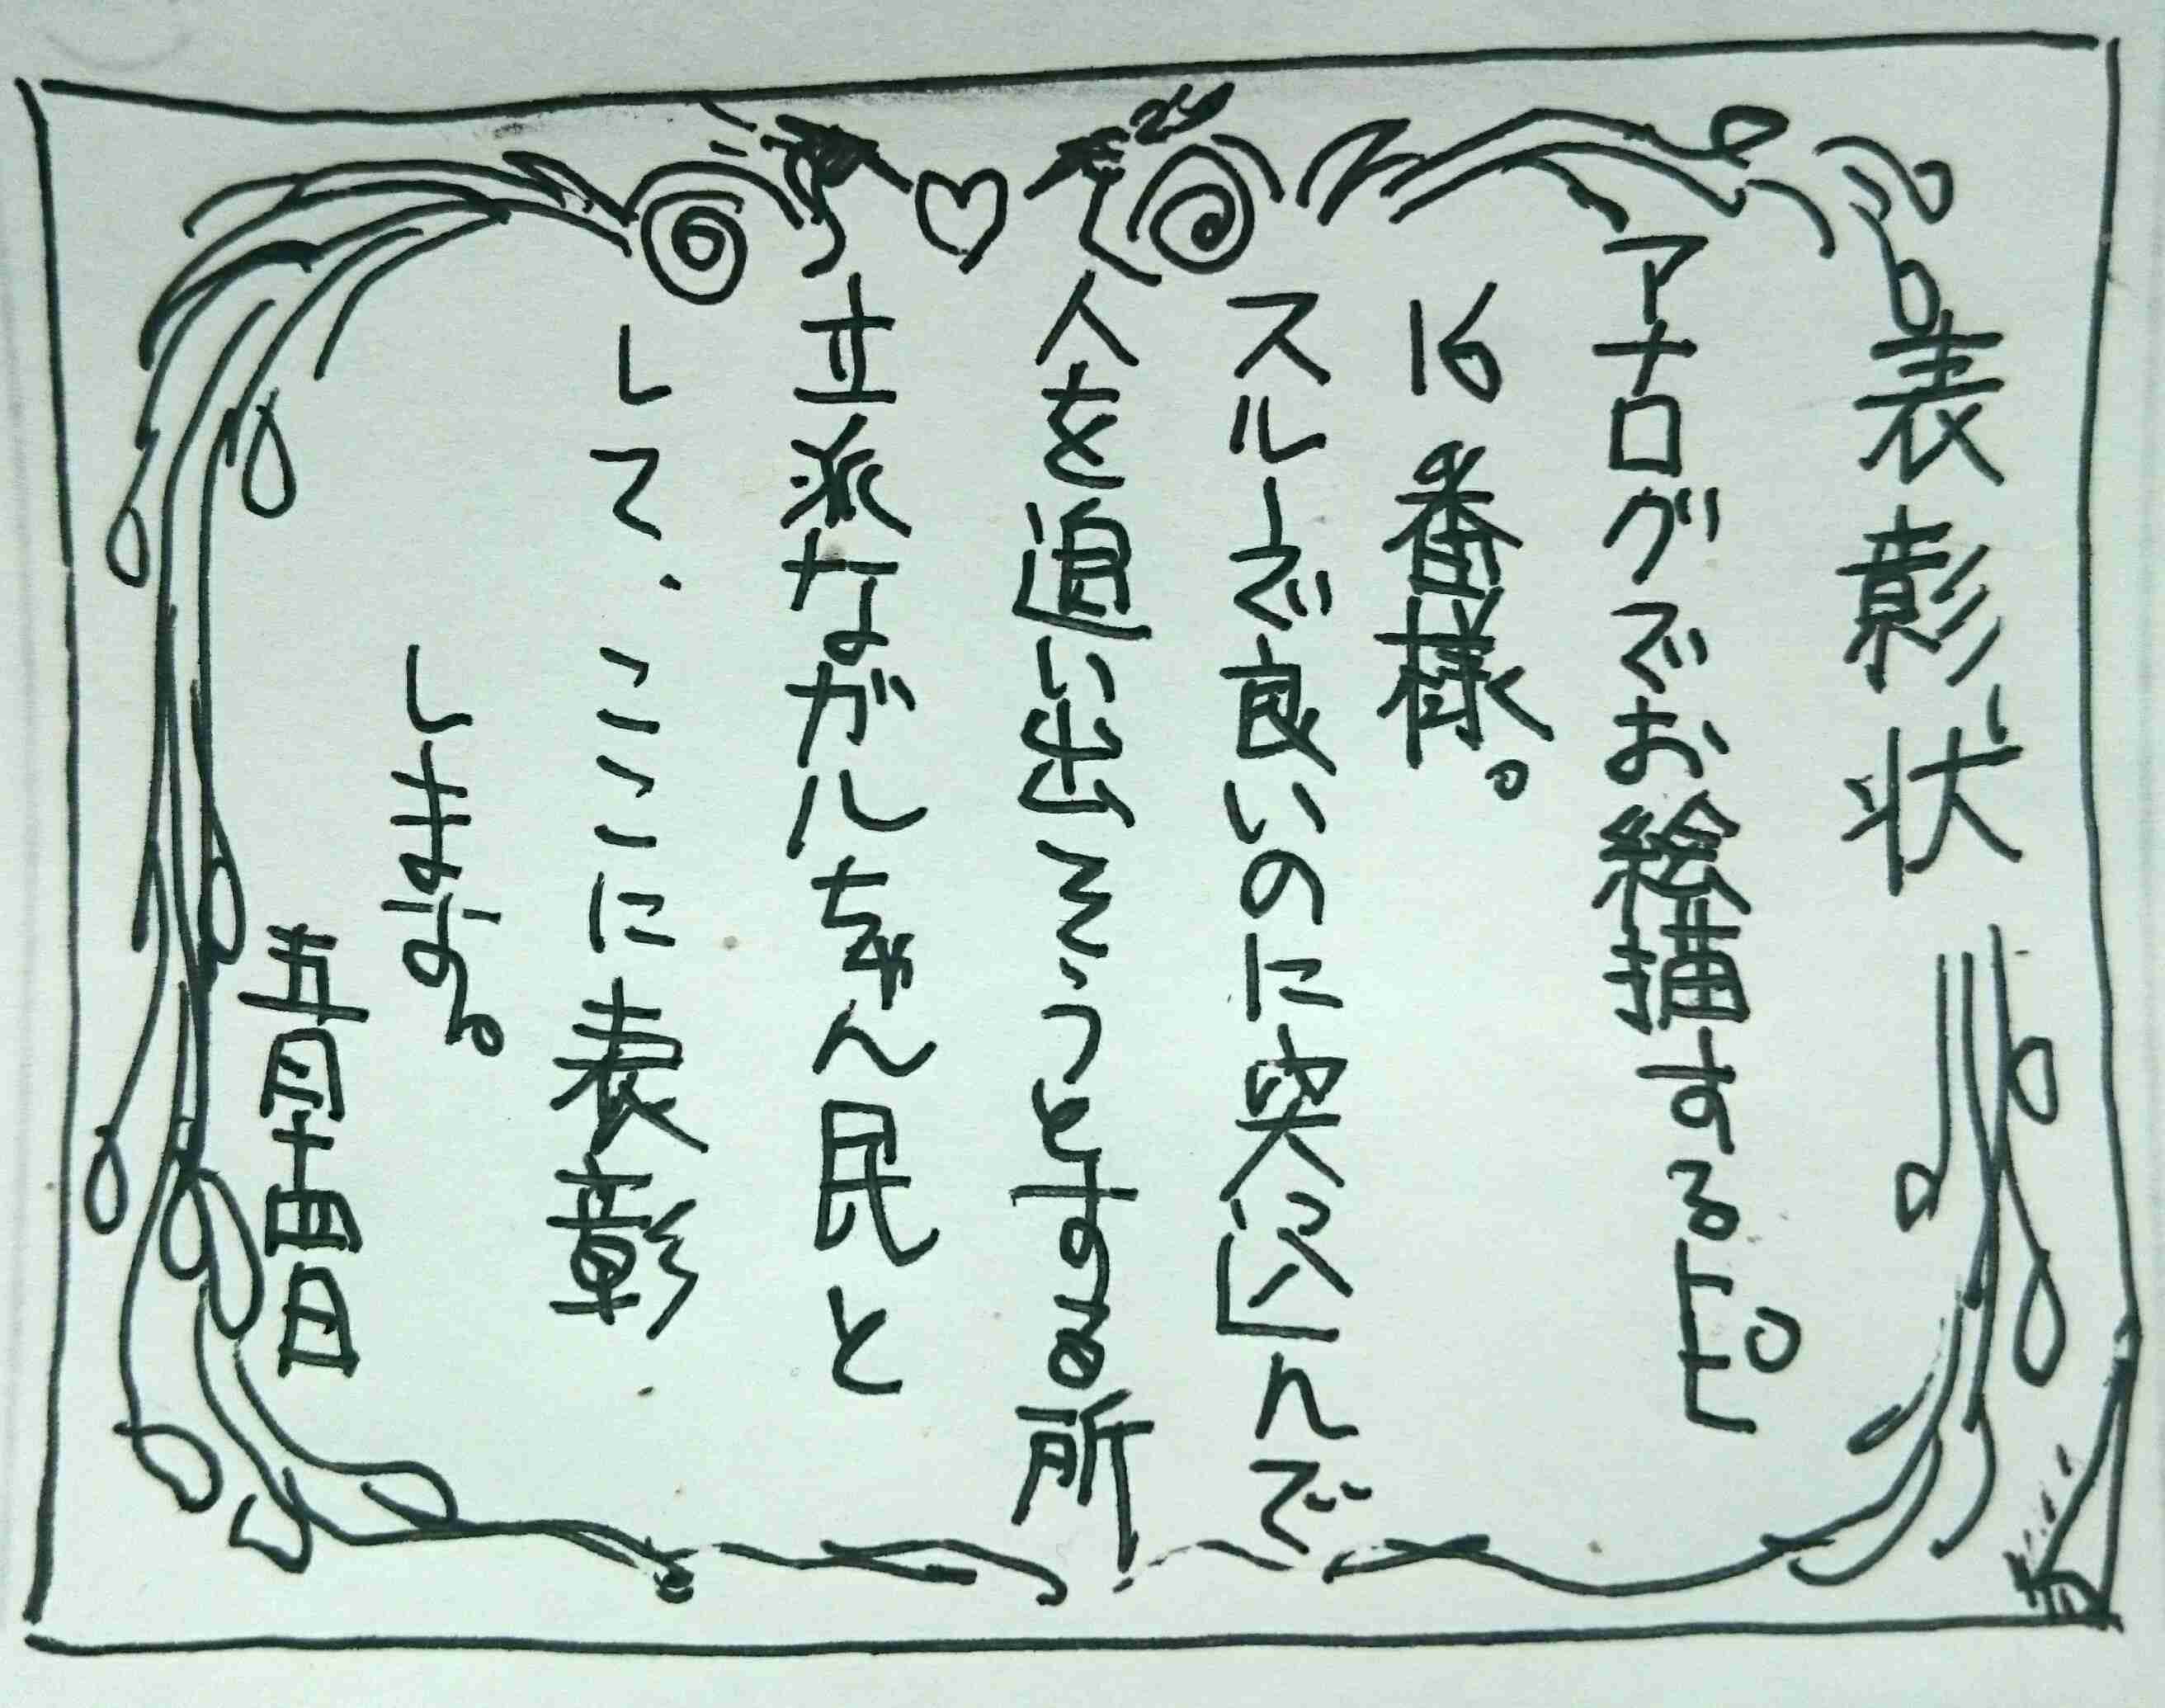 表彰状
アナログでお絵描するトピ
16番様。
スルーで良いのに突っ込んで
人を追い出そうとする所
立派なガルちゃん民と
して、ここに表彰
します。
五月十四日